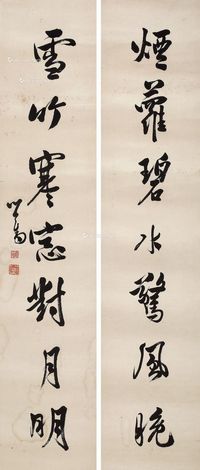 煙蘿碧水驚風晚
雪竹寒窓對月明
溥儒